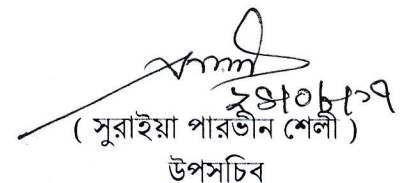 ২৪/০৮/১৭
( সুরাইয়া পারভীন শেলী )
উপসচিব